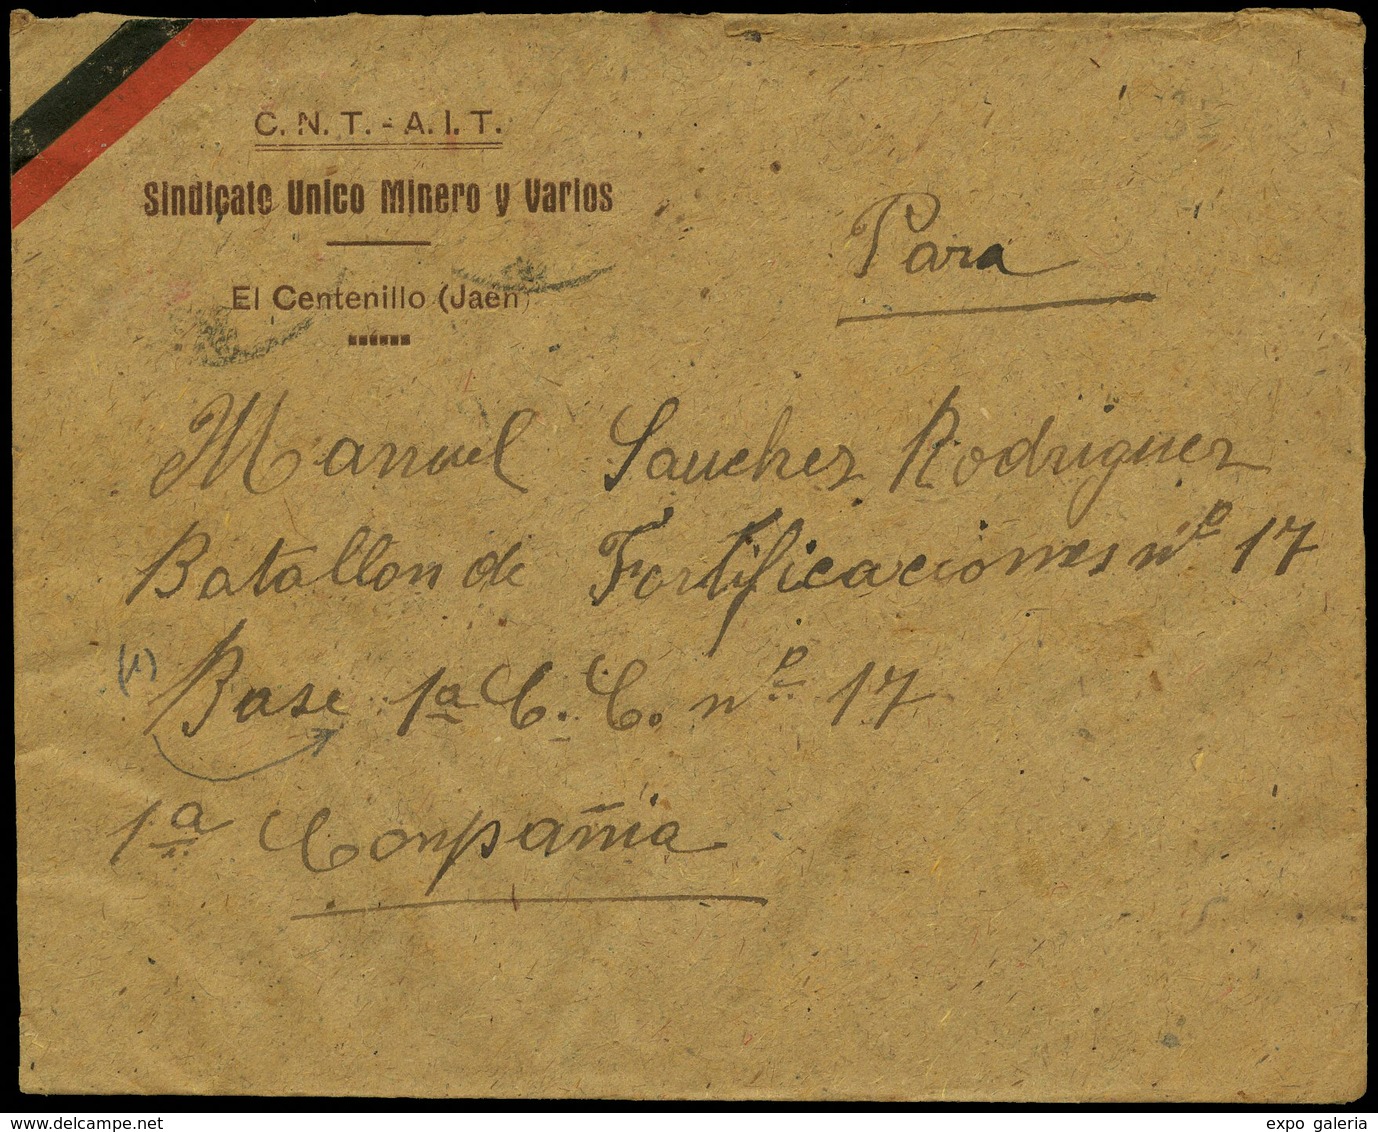 C. N. T. - A. I. T.
Sindicato Unico Minero y Varios
El Centenillo (Jaen)
Para
Manuel Sanchez Rodriguez
Batallon de Fortificaciones nº 17
(1) Base 1ª C. C. nº 17
1ª Conpañia
www.delcampe.net
expo galeria